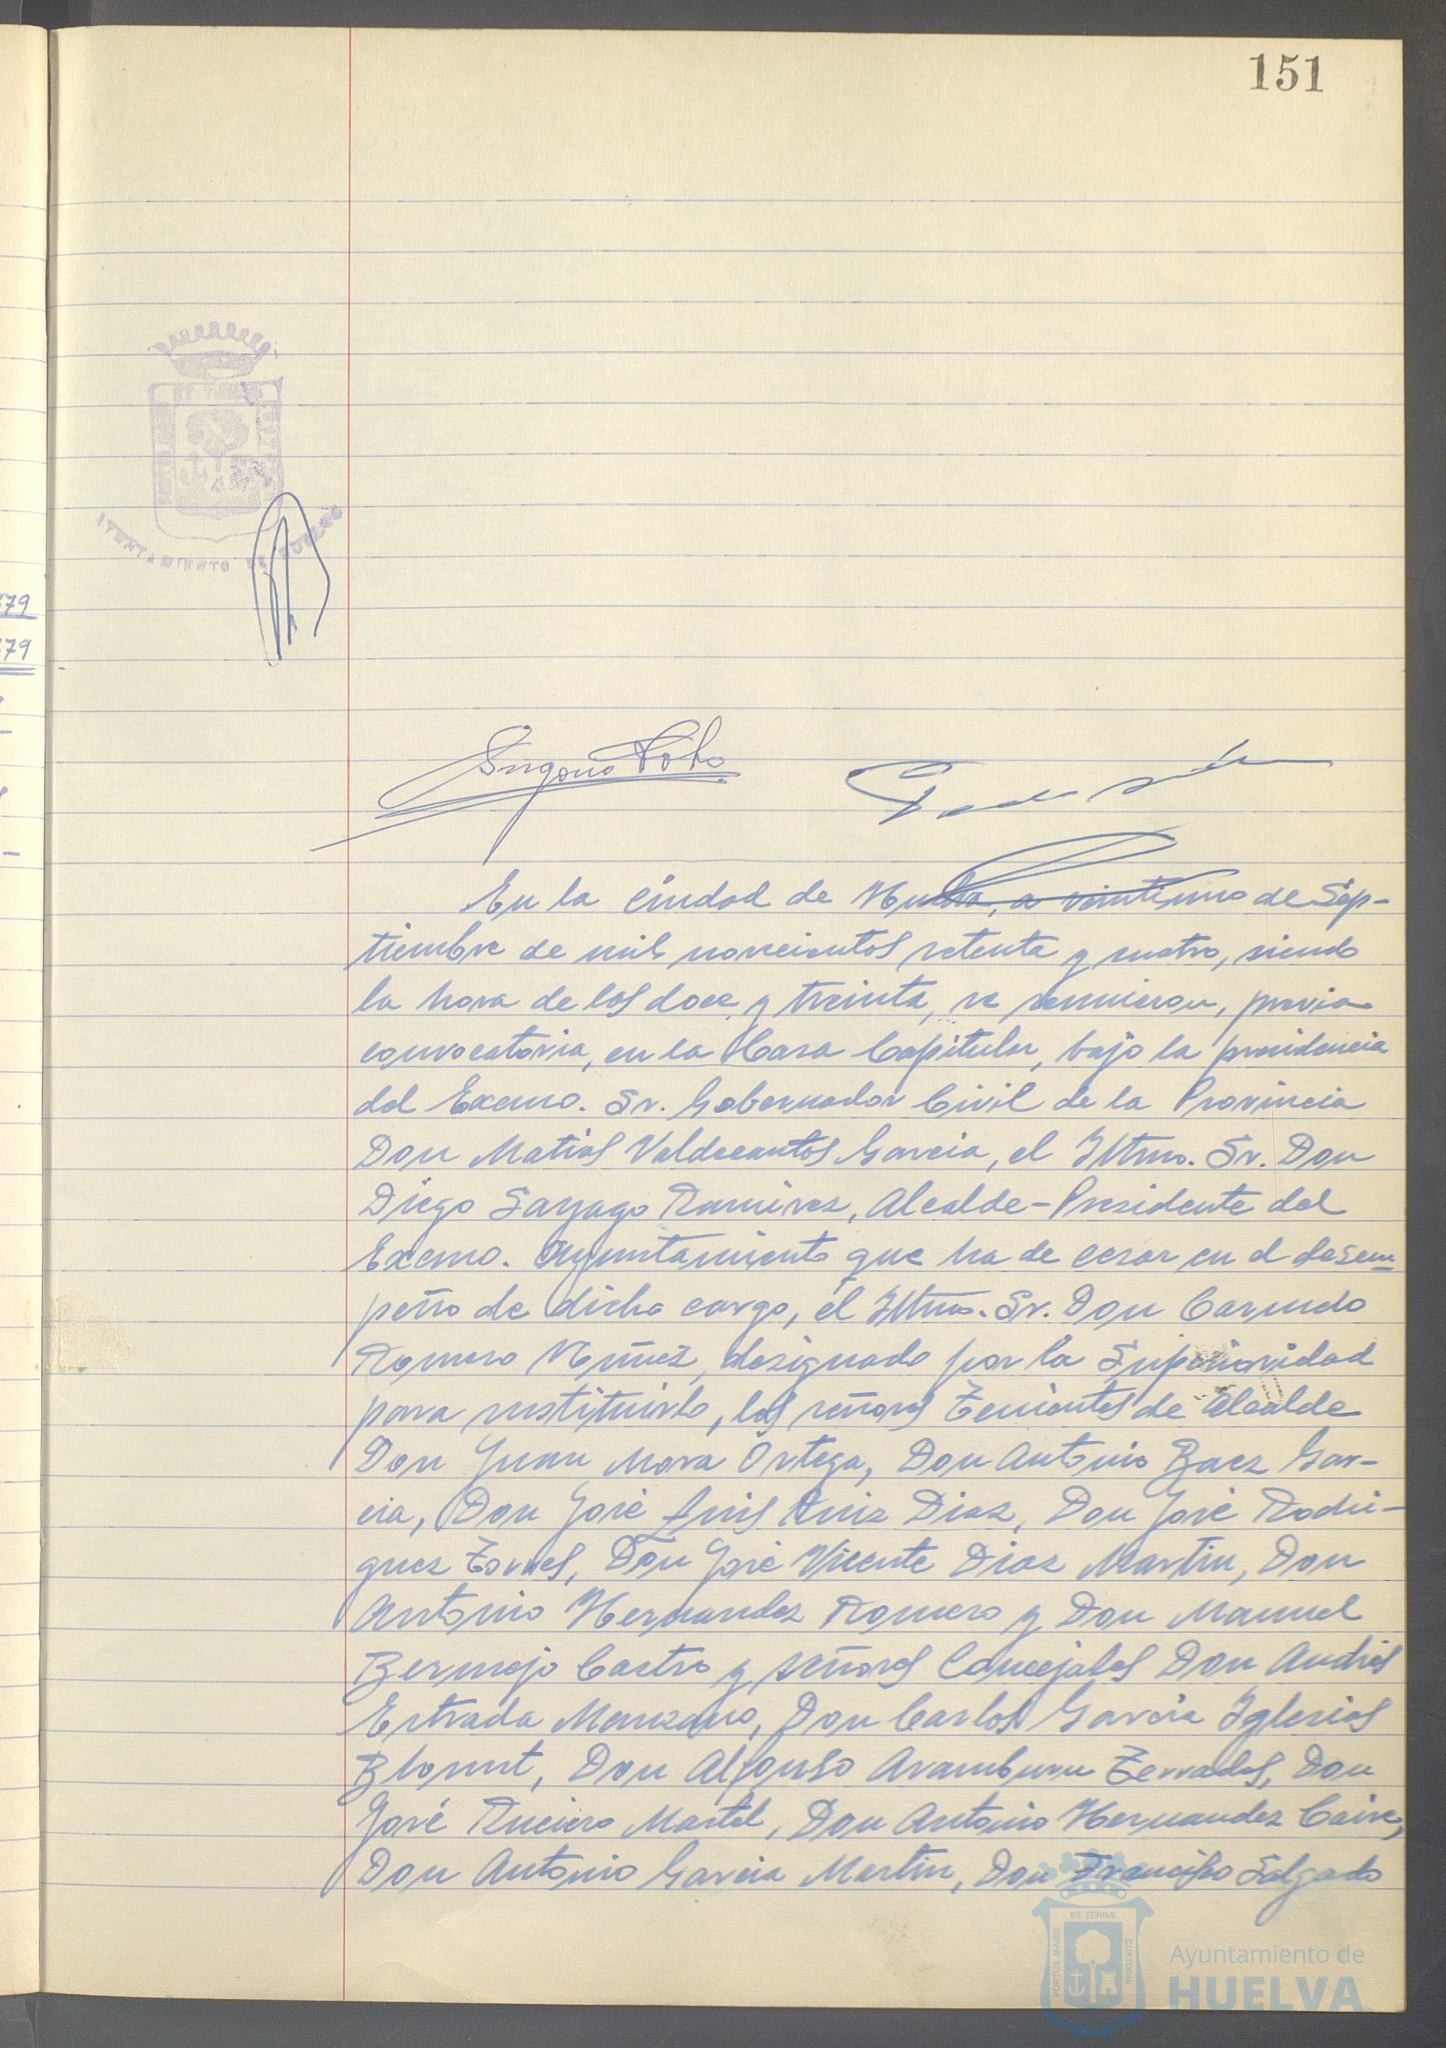 151
79
79
AYUNTAMIENTO DE HUELVA
En la Ciudad de Huelva, a veintiuno de Sep-
tiembre de mil novecientos setenta y cuatro, siendo
la hora de las doce y treinta, se reunieron, previa
convocatoria, en la Casa Capitular, bajo la presidencia
del Excmo. Sr. Gobernador Civil de la Provincia
Don Matías Valdecantos García, el Iltmo. Sr. Don
Diego Sayago Ramirez, Alcalde-Presidente del
Excmo. Ayuntamiento que ha de cesar en el desem-
peño de dicho cargo, el Iltmo. Sr. Don Carmelo
Romero Núñez, designado por la Superioridad
para sustituirlo, los señores Tenientes de Alcalde
Don Juan Mora Ortega, Don Antonio Baez Gar-
cia, Don José Luis Ruiz Diaz, Don José Rodri-
guez Torres, Don José Vicente Diaz Martin, Don
Antonio Hernandez Romero y Don Manuel
Bermejo Castro y señores Concejales Don Andrés
Estrada Manzano, Don Carlos García Iglesias
Blount, Don Alfonso Aramburu Terrades, Don
José Ruciero Martel, Don Antonio Hernandez Caire,
Don Antonio Garcia Martin, Don Francisco Salgado
PORTUS MARIS ET TERRAE CUSTODIA
Ayuntamiento de
HUELVA